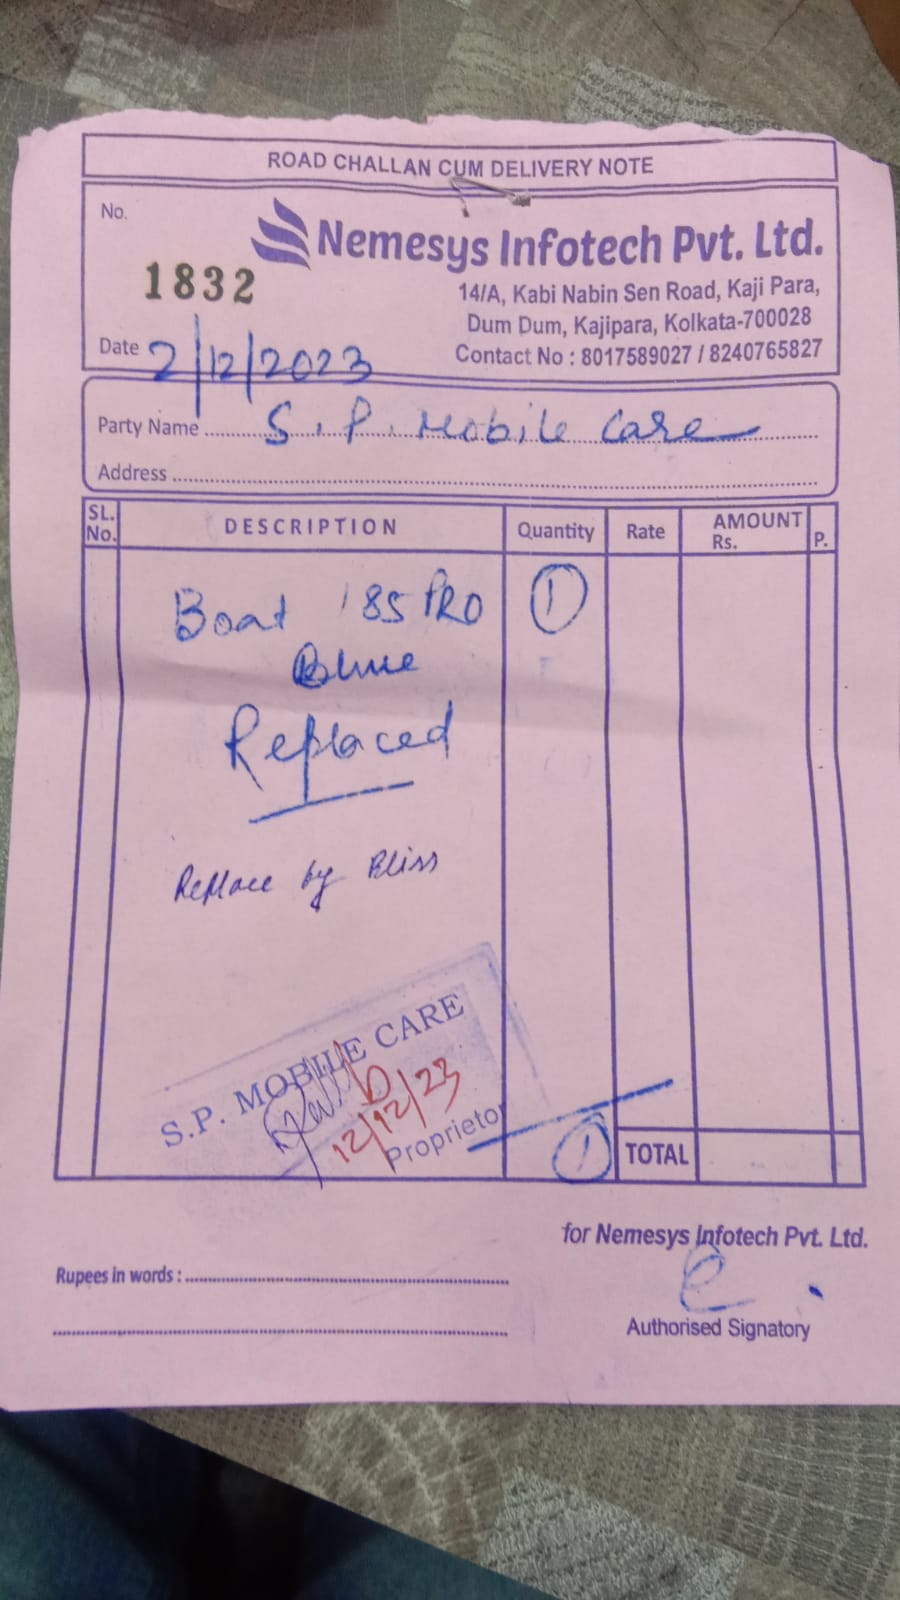 ROAD CHALLAN CUM DELIVERY NOTE
No.
1832
Nemesys Infotech Pvt. Ltd.
14/A, Kabi Nabin Sen Road, Kaji Para,
Dum Dum, Kajipara, Kolkata-700028
Contact No : 8017589027 / 8240765827
Date 2/12/2023
Party Name S. P. Mobile Care
Address
SL. No. DESCRIPTION Quantity Rate AMOUNT Rs. P.
Boat 185 PRO 1
Blue
Replaced
Replace by Bliss
S.P. MOBILE CARE
12/12/23
Proprietor
1 TOTAL
for Nemesys Infotech Pvt. Ltd.
Rupees in words :
Authorised Signatory